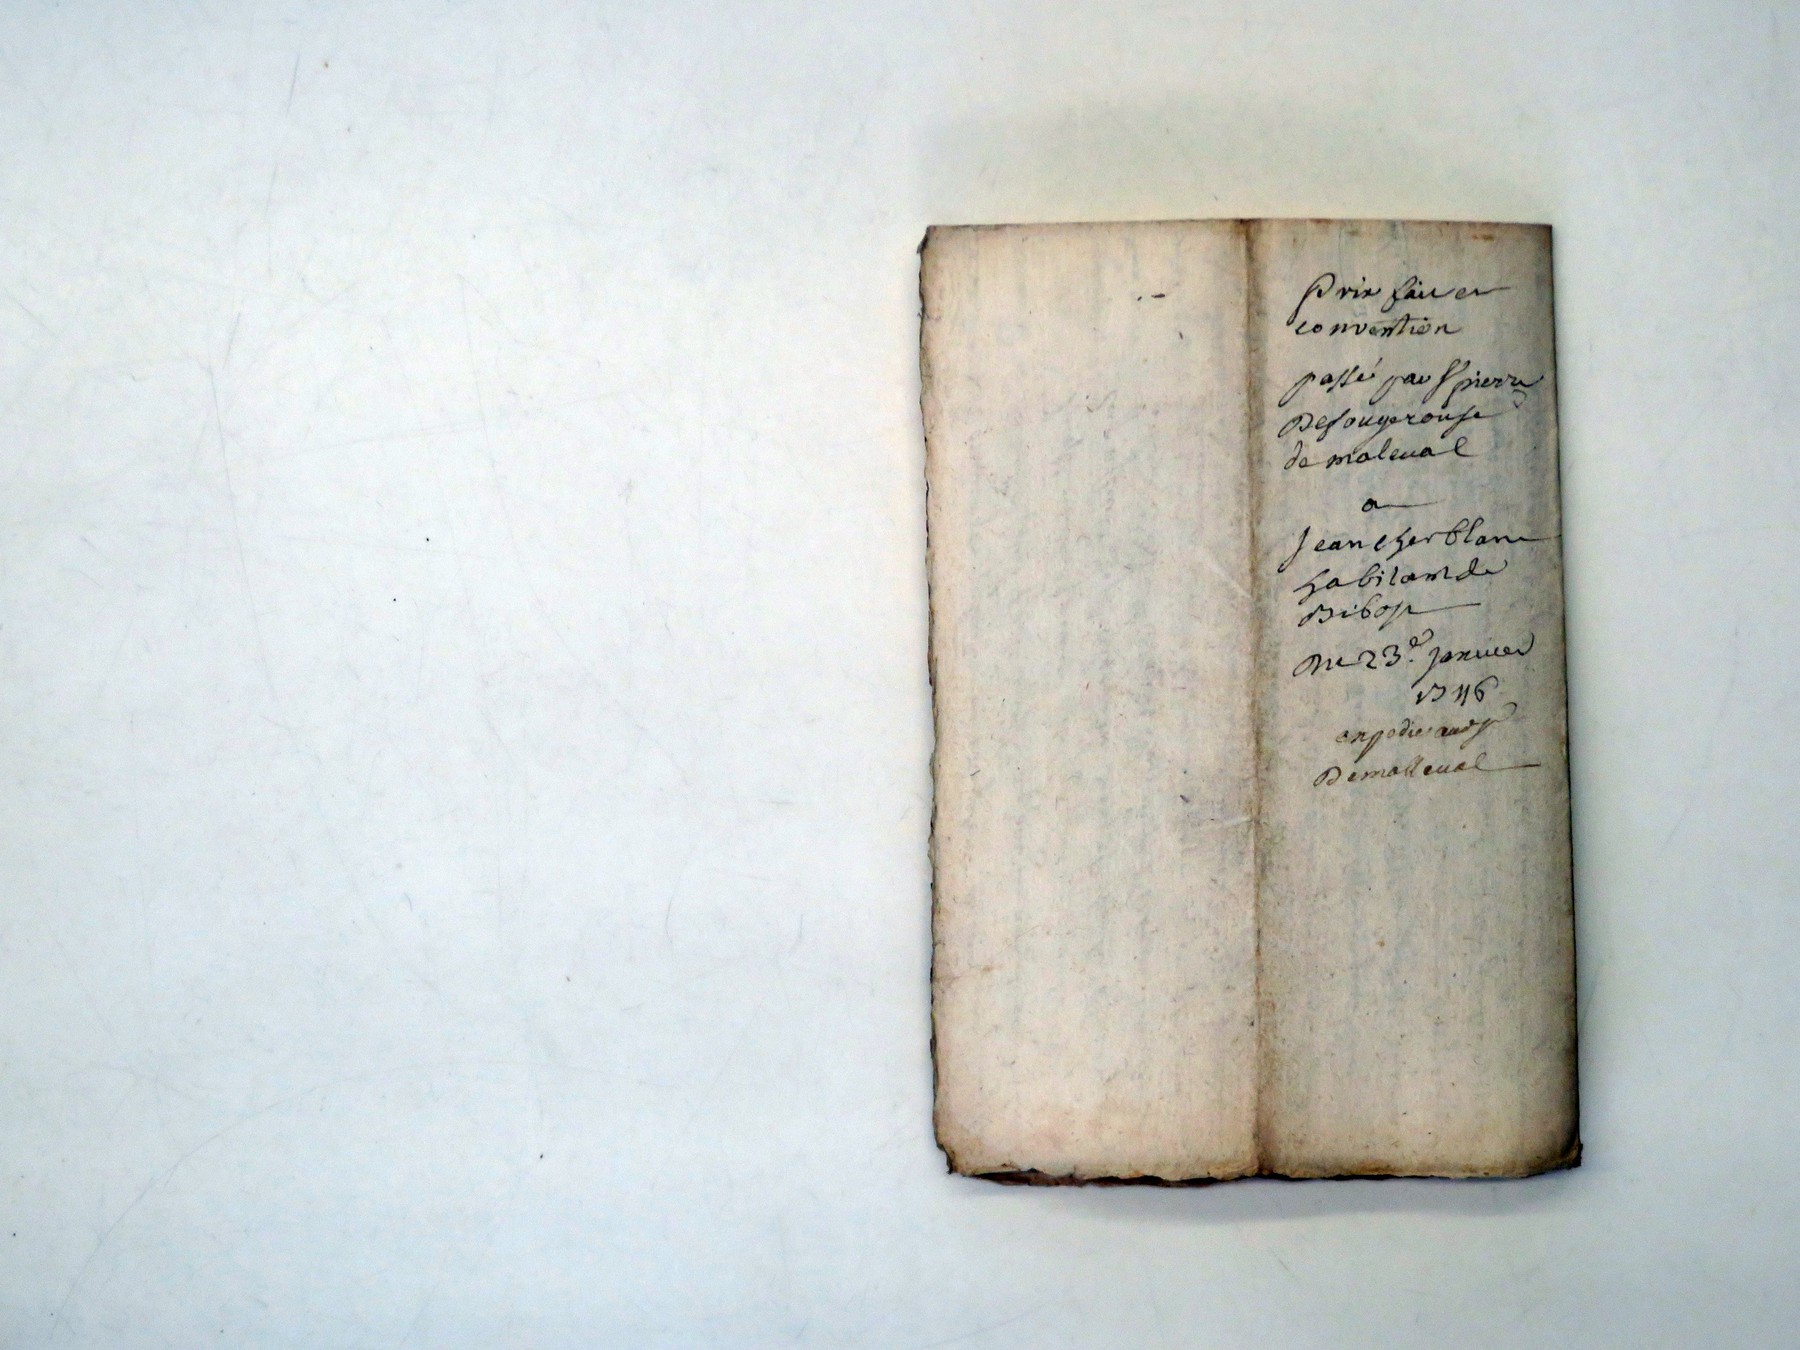 Prix fait et
convention
passé par Sr pierre
Defougerouse
de maleual
a
Jean cherblanc
habitant de
Bibost
Du 23e. januier
1746
expedié audt Sr
Demalleual